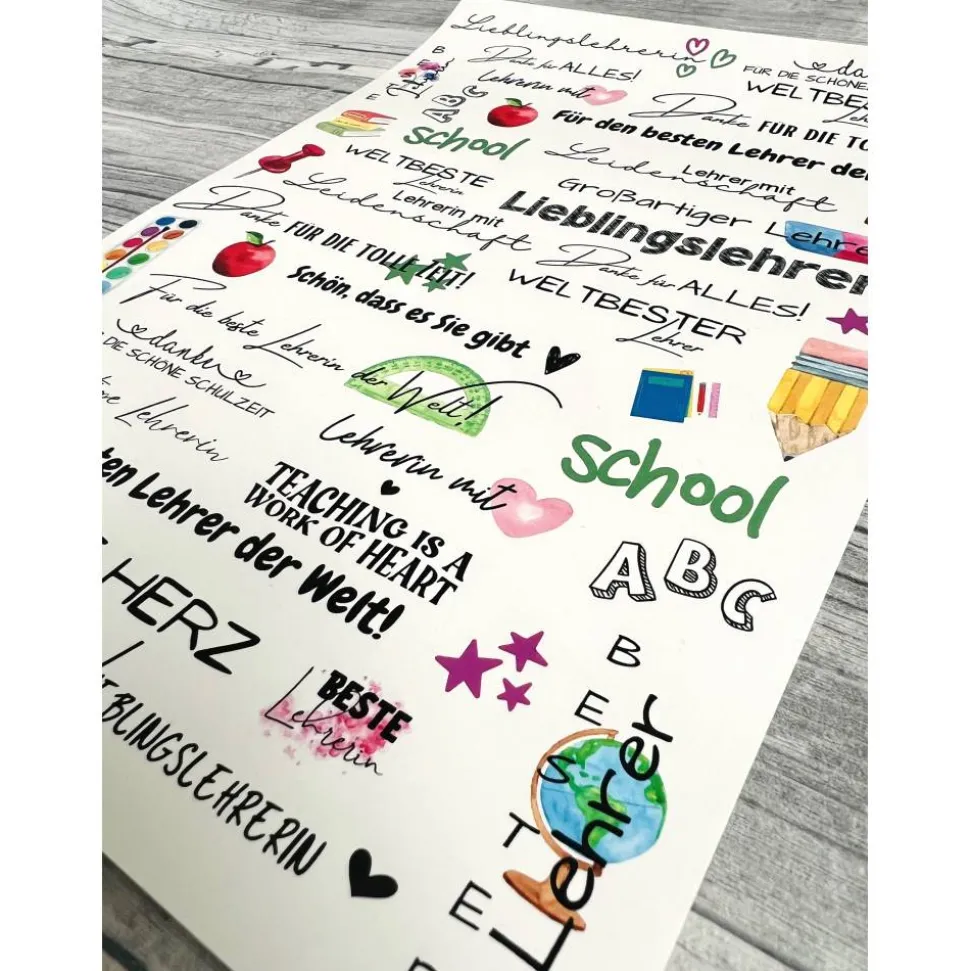 Lieblingslehrerin
Danke für ALLES!
danke
FÜR DIE SCHÖNE
Lehrerin mit
WELTBES
ABC
Danke FÜR DIE TO
Für den besten Lehrer de
school
Leidenschaft
Lehrer mit
WELTBESTE
Lehrerin
Großartiger
Lehre
Lehrerin mit
Leidenschaft
Lieblingslehrer
Danke FÜR DIE TOLLE ZEIT!
Danke für ALLES!
Schön, dass es Sie gibt
WELTBESTER
Lehrer
Für die beste Lehrerin der Welt!
danke
DIE SCHÖNE SCHULZEIT
ne Lehrerin
school
Lehrerin mit
TEACHING IS A
WORK OF HEART
ten Lehrer der Welt!
ABC
HERZ
BESTE
Lehrerin
BLINGSLEHRERIN
BESTE
Lehrer